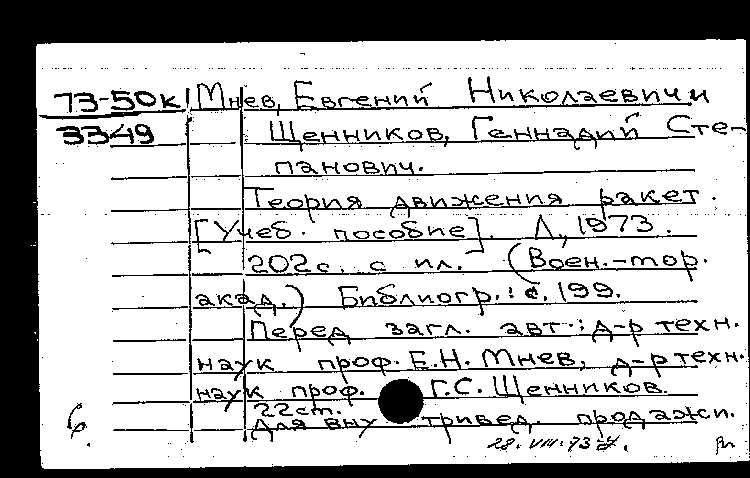 73-50к Мнев, Евгений Николаевич и
3349 Щенников, Геннадий Сте-
панович.
Теория движения ракет.
[Учеб. пособие]. Л., 1973.
202 с. с ил. (Воен.-мор.
акад.) Библиогр.: с. 199.
Перед загл. авт.: д-р техн.
наук проф. Е.Н. Мнев, д-р техн.
наук проф. Г.С. Щенников.
22 ст.
б. Для внутривед. продажи.
28.VIII.73